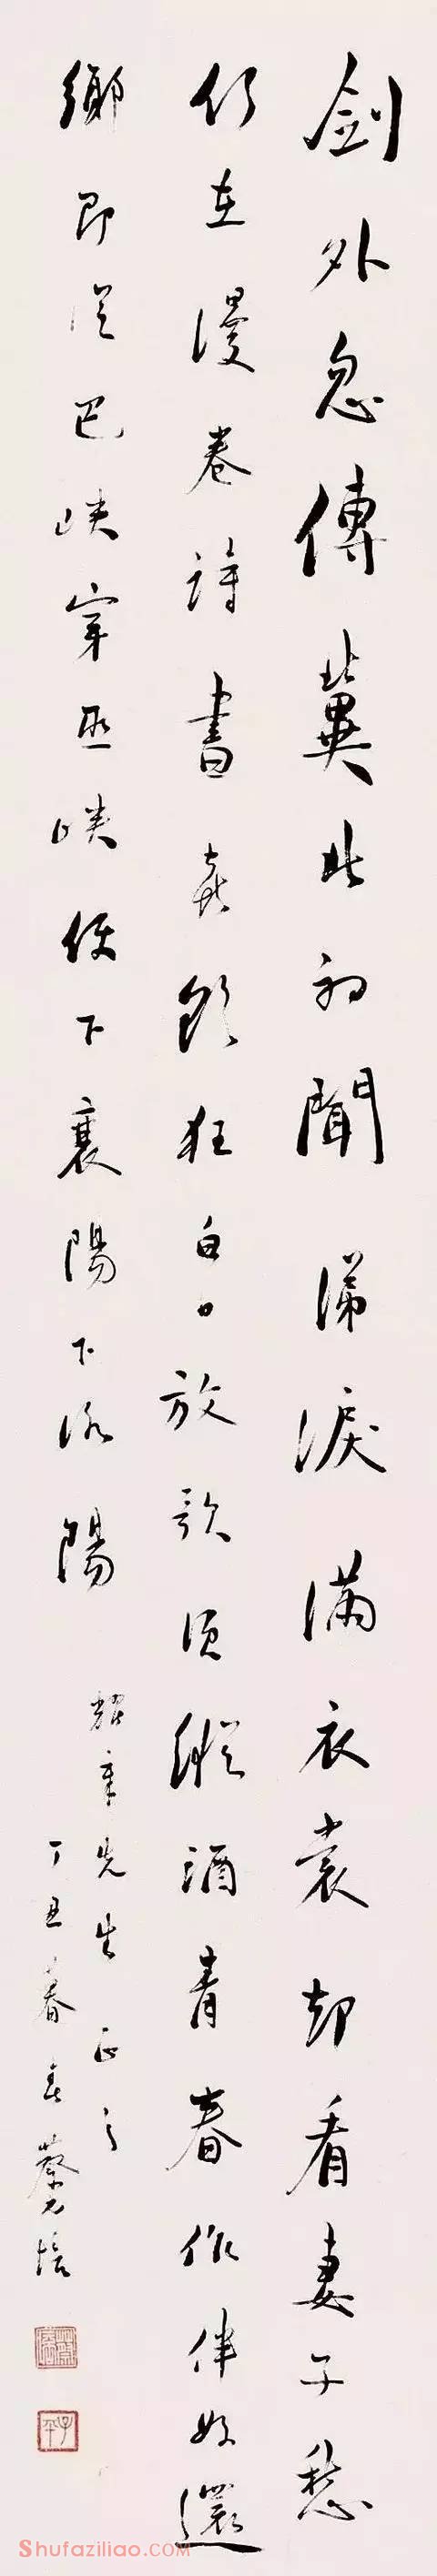 劍外忽傳冀北初聞涕淚滿衣裳却看妻子愁
何在漫卷詩書喜欲狂白日放歌須縱酒青春作伴好還
鄉即從巴峽穿巫峽便下襄陽下洛陽
章先生正之
丁丑暮春蔡元培
shufaziliao.com